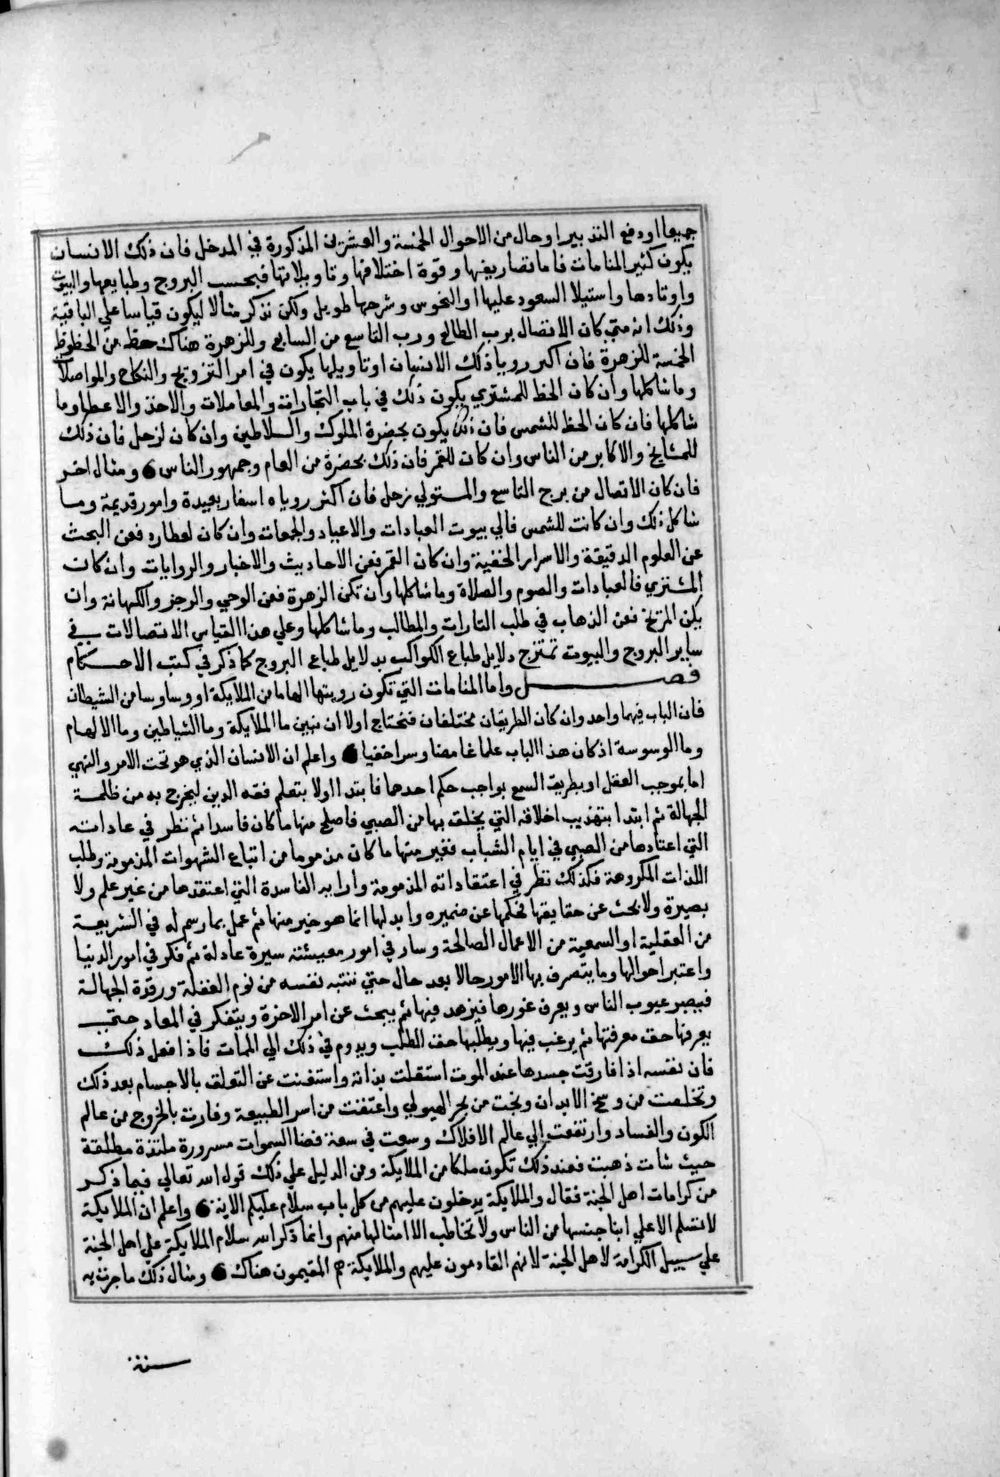 جميعا اودفع التدبير اوحال من الاحوال الخمسة والعشرين المذكورة في المدخل فان ذلك الانسان
يكون كثير المنامات فاما تصاريفها وقوة اختلافها وتاويلاتها فبحسب البروج وطبايعها والبيوت
واوتادها واستيلا السعود عليها او النحوس وشرحها طويل ولكن نذكر مثالا ليكون قياسا علي الباقية
وذلك انه متي كان الاتصال برب الطالع ورب التاسع من السابع وللزهرة هناك حظ من الحظوظ
الخمسة للزهرة فان اكبر رويا ذلك الانسان اوتاويلها يكون في امر التزويج والنكاح والمواصلات
وماشاكلها وان كان الحظ للمشتري يكون ذلك في باب التجارات والمعاملات والاخذ والاعطا وما
شاكلها فان كان الحظ للشمس فان ذلك يكون بحضرة الملوك والسلاطين وان كان لزحل فان ذلك
للمشايخ والاكابر من الناس وان كان للقمر فان ذلك بحضرة من العام وجمهور الناس ومثال اخر
فان كان الاتصال من برج التاسع والمستولي زحل فان اكثر روياه اسفار بعيدة وامور قديمة وما
شاكل ذلك وان كانت للشمس فالي بيوت العبادات والاعياد والجمعات وان كان لعطارد فعن البحث
عن العلوم الدقيقة والاسرار الخفية وان كان القمر فعن الاحاديث والاخبار والروايات وان كان
المشتري فالعبادات والصوم والصلاة وماشاكلها وان تكن الزهرة فعن الوحي والزجر والكهانة وان
يكن المريخ فعن الذهاب في طلب التارات والمطالب وماشاكلها وعلي هذا القياس الاتصالات في
ساير البروج والبيوت تمتزج دلايل طباع الكواكب بدلايل طباع البروج كما ذكر في كتب الاحكام
فصل واما المنامات التي تكون رويتها الهاما من الملايكة او وساوسا من الشيطان
فان الباب فيهما واحد وان كان الطريقان مختلفان فنحتاج اولا ان نبين ما الملايكة وما الشياطين وما الالهام
وما الوسوسة اذ كان هذا الباب علما غامضا وسرا خفيا واعلم ان الانسان الذي هو تحت الامر والنهي
اما بموجب العقل او بطريق السمع بواجب حكم احدهما فابتدا اولا بتعلم فقه الدين ليخرج به من ظلمة
الجهالة ثم ابتدا بتهذيب اخلاقه التي يخلق بها من الصبي فاصلح منها ما كان فاسدا ثم نظر في عاداته
التي اعتادها من الصبي في ايام الشباب فغير منها ما كان مذموما من اتباع الشهوات المذمومة وطلب
اللذات المكروهة فكذلك نظر في اعتقاداته المذمومة وارايه الفاسدة التي اعتقدها من غير علم ولا
بصيرة ولا بحث عن حقايقها فحكها عن ضميره وابدلها انما هو خير منها ثم عمل بما رسم له في الشريعة
من العقلية او السمعية من الاعمال الصالحة وسار في امور معيشته سيرة عادلة ثم فكر في امور الدنيا
واعتبر احوالها وما يتصرف بها الامور حالا بعد حال حتي تنتبه نفسه من نوم الغفلة ورقدة الجهالة
فيبصر عيوب الناس ويعرف غورها فيزهد فيها ثم يبحث عن امر الاخرة ويتفكر في المعاد حتي
يعرفها حق معرفتها ثم يرغب فيها ويطلبها حق الطلب ويدوم في ذلك الي الممات فاذا فعل ذلك
فان نفسه اذا فارقت جسدها عند الموت استقلت بذاته واستغنت عن التعلق بالاجسام بعد ذلك
وتخلصت من وسخ الابدان ونجت من بحر الهيولي واعتقت من اسر الطبيعة وفازت بالخروج من عالم
الكون والفساد وارتفعت الي عالم الافلاك وسعت في سعة فضا السموات مسرورة ملتذة مطلقة
حيث شات ذهبت فعند ذلك تكون ملكا من الملايكة ومن الدليل علي ذلك قول الله تعالي فيما ذكر
من كرامات اهل الجنة فقال والملايكة يدخلون عليهم من كل باب سلام عليكم الاية واعلم ان الملايكة
لا تسلم الا علي ابنا جنسها من الناس ولا تخاطب الا امثالها منهم وانما ذكر الله سلام الملايكة علي اهل الجنة
علي سبيل الكرامة لاهل الجنة لانهم القادمون عليهم والملايكة هم المقيمون هناك ومثال ذلك ما جرت به
سنة